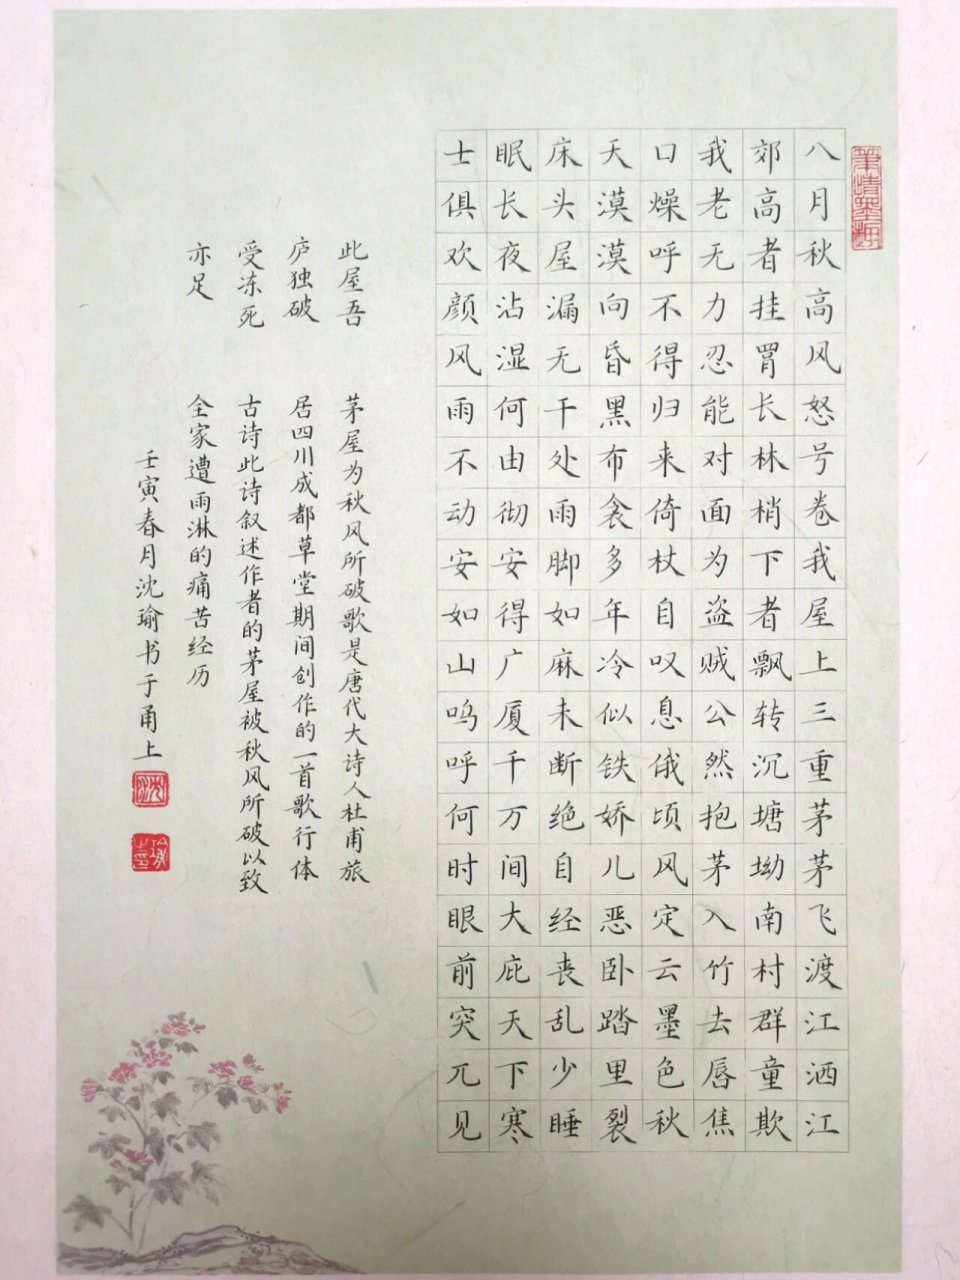 八月秋高风怒号卷我屋上三重茅茅飞渡江洒江
郊高者挂罥长林梢下者飘转沉塘坳南村群童欺
我老无力忍能对面为盗贼公然抱茅入竹去唇焦
口燥呼不得归来倚杖自叹息俄顷风定云墨色秋
天漠漠向昏黑布衾多年冷似铁娇儿恶卧踏里裂
床头屋漏无干处雨脚如麻未断绝自经丧乱少睡
眠长夜沾湿何由彻安得广厦千万间大庇天下寒
士俱欢颜风雨不动安如山呜呼何时眼前突兀见
此屋吾
庐独破
受冻死
亦足
茅屋为秋风所破歌是唐代大诗人杜甫旅
居四川成都草堂期间创作的一首歌行体
古诗此诗叙述作者的茅屋被秋风所破以致
全家遭雨淋的痛苦经历
壬寅春月沈瑜书于甬上